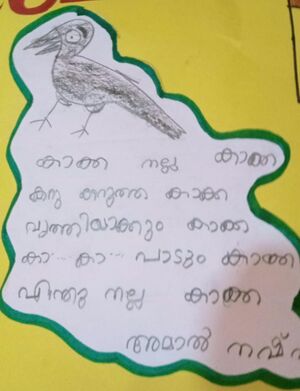 കാക്ക നല്ല കാക്ക
കറു കറുത്ത കാക്ക
വൃത്തിയാക്കും കാക്ക
കാ... കാ... പാടും കാക്ക
എന്തു നല്ല കാക്ക
അമാൽ